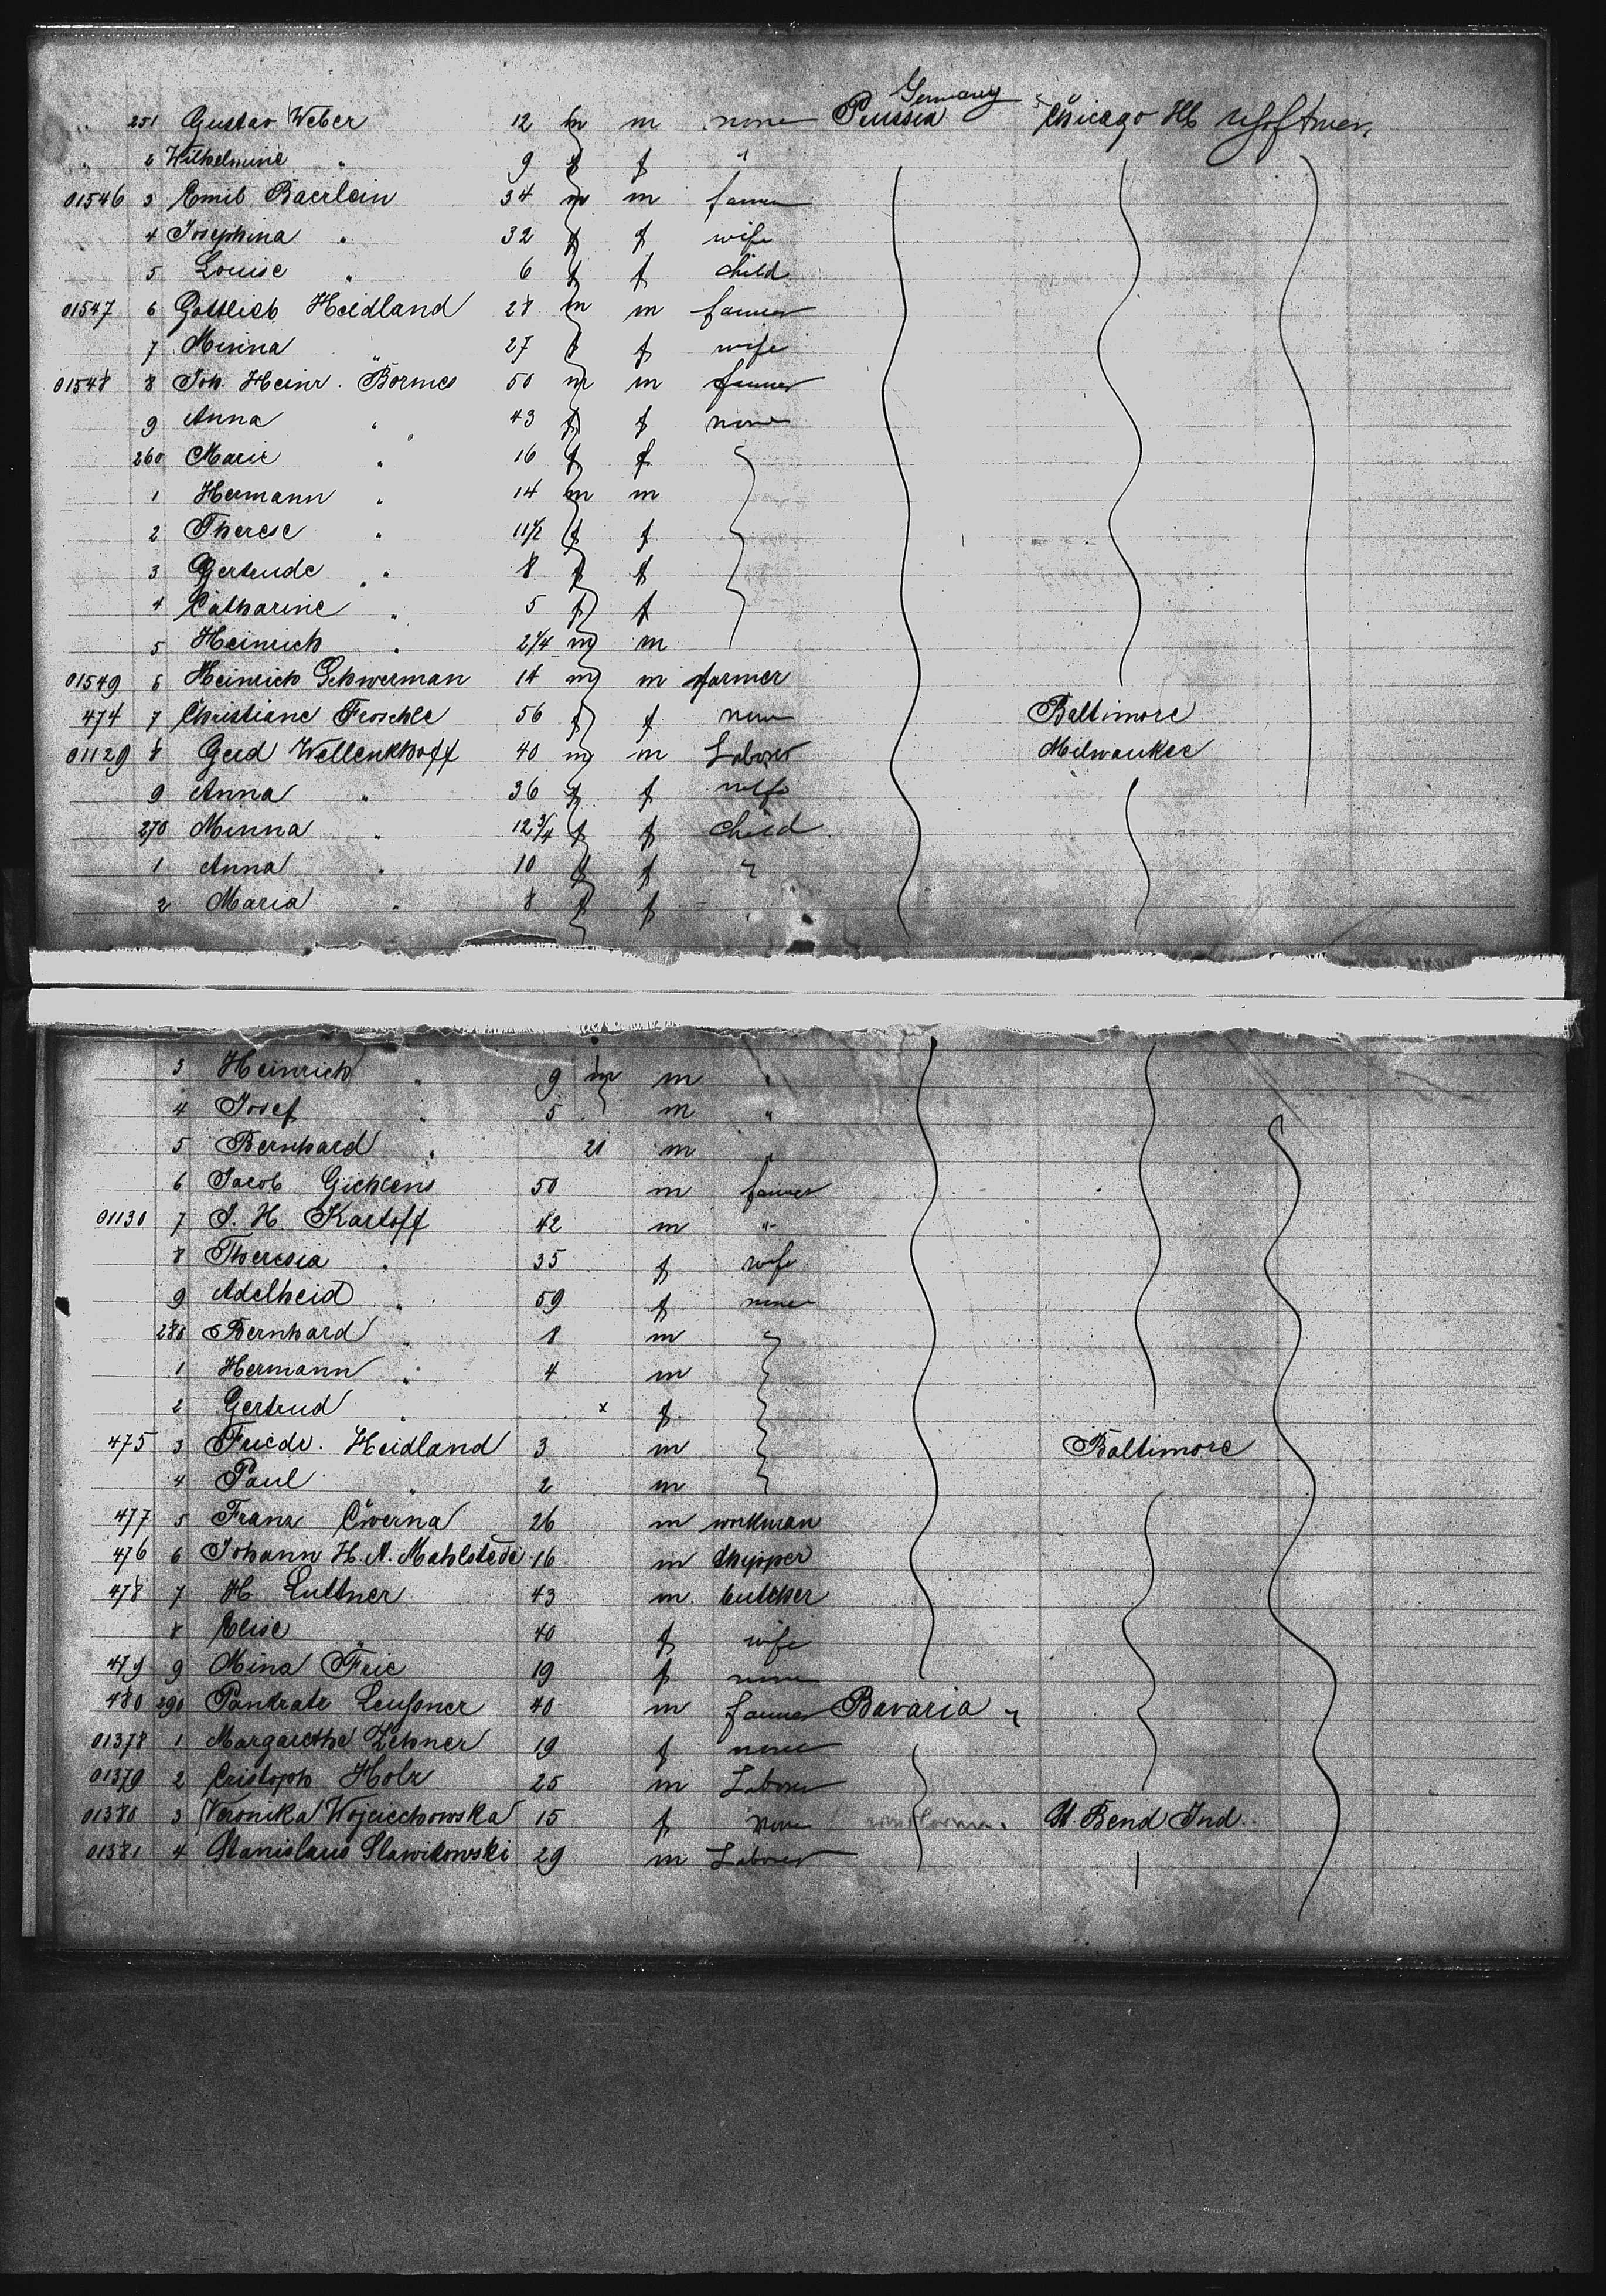 Germany
251 Gustav Weber 12 m m none Prussia Chicago Ills
2 Wilhelmine " 9 f f "
01546 3 Emil Baerlein 34 m m farmer
4 Josephina " 32 f f wife
5 Louise " 6 f f child
01547 6 Gottlieb Heidland 28 m m farmer
7 Minna " 27 f f wife
01548 8 Joh. Heinr. Börmes 50 m m farmer
9 Anna " 43 f f none
260 Marie " 16 f f
1 Hermann " 14 m m
2 Therese " 11 1/2 f f
3 Gertrude " 8 f f
4 Catharine " 5 f f
5 Heinrich " 2 1/4 m m
01549 6 Heinrich Schwerman 14 m m farmer
474 7 Christiane Froschle 56 f f none Baltimore
01129 8 Gerd Wellenkhoff 40 m m Laborer Milwaukee
9 Anna " 36 f f wife
270 Minna " 12 3/4 f f child
1 Anna " 10 f f "
2 Maria " 8 f f
3 Heinrich " 9 m m "
4 Josef " 5 m "
5 Bernhard " 21 m "
6 Jacob Gichlens 50 m farmer
01130 7 J. H. Kartoff 42 m "
8 Theresia " 35 f wife
9 Adelheid " 59 f none
280 Bernhard " 8 m
1 Hermann " 4 m
2 Gertrud " x f
475 3 Friedr. Heidland 3 m Baltimore
4 Paul " 2 m
477 5 Franz Cwerna 26 m workman
476 6 Johann H. A. Mahlstede 16 m shipper
478 7 H Luttner 43 m butcher
8 Elise " 40 f wife
479 9 Mina Frie 19 f none
480 290 Pankratz Leußner 40 m farmer Bavaria "
01378 1 Margaretha Lehner 19 f none
01379 2 Cristoph Holz 25 m Laborer
01380 3 Veronika Wojciechowska 15 f none St. Bend Ind.
01381 4 Stanislaus Slawikowski 29 m Laborer